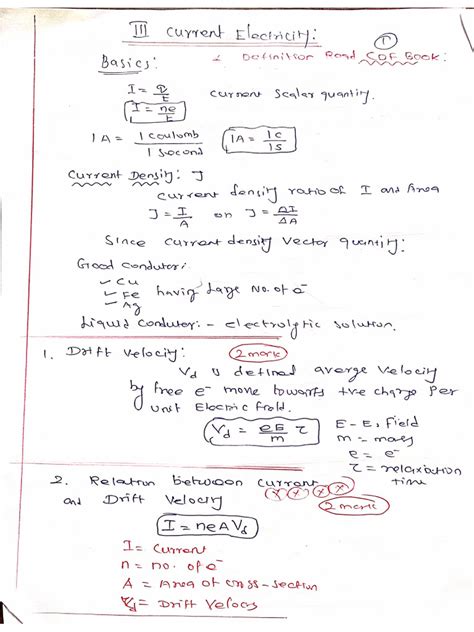 III Current Electricity:
1
Definition Read CDF Book:
Basics:
I = q/t current scalar quantity.
I = ne/t
1A = 1 coulomb / 1 second 1A = 1c/1s
Current Density: J
current density ratio of I and Area
J = I/A or J = ΔI/ΔA
Since current density vector quantity:
Good condutor:
Cu
Fe having large No. of e⁻
Ag
Liquid Condutor:- electrolytic solution.
1. Drift velocity: 2 mark
Vd is defined averge velocity
by free e⁻ move towards +ve charge per
unit Electric field.
Vd = eE/m τ
E - E, field
m = mass
e = e⁻
τ = relaxation time
2. Relation between current
and Drift Velocity
2 mark
I = neAVd
I = Current
n = no. of e⁻
A = Area of cross-section
Vd = Drift Velocity